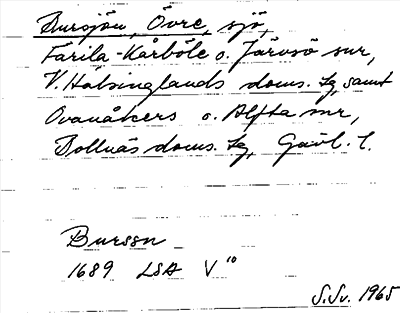 Bursjön, Övre, sjö,
Färila-Kårböle o. Järvsö snr,
V. Hälsinglands doms. sg, samt
Ovanåkers o. Alfta snr,
Bollnäs doms. sg, Gävl. l.
Burssn
1689 LSA V 10
S.Sv. 1965